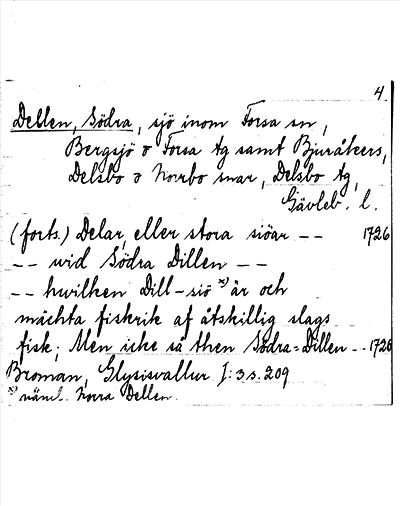 4.
Dellen, Södra, sjö inom Forsa sn,
Bergsjö o Forsa tg samt Bjuråkers,
Delsbo o Norrbo snar, Delsbo tg,
Gävleb. l.
(forts.) Delar, eller stora siöar -- 1726
-- wid Södra Dillen --
-- hwilken Dill-siö x) är och
mächta fiskrik af åtskillig slags
fisk; Men icke så then Södra=Dillen -- 1726
Broman, Glysisvallur I: 3 s. 209
x) näml. Norra Dellen.